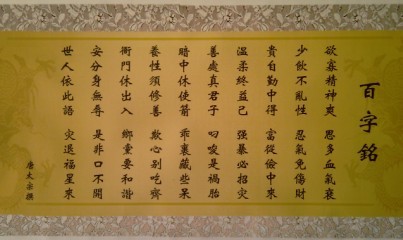 百字銘
欲寡精神爽 思多血氣衰
少飲不亂性 忍氣免傷財
貴自勤中得 富從儉中來
溫柔終益己 強暴必招灾
善處真君子 唆是禍胎
暗中休使箭 乖裏藏些呆
養性須修善 欺心別吃齊
衙門休出入 鄉重要和諧
安分身無辱 是非口不開
世人依此語 灾退福星來
唐太宗撰